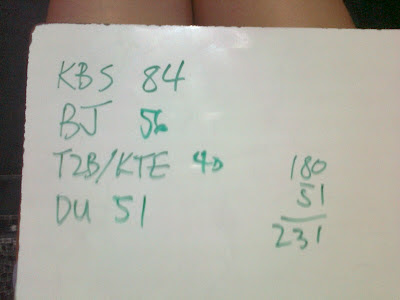 KBS 84
BJ 56
T2B/KTE 40
DU 51
180
51
231